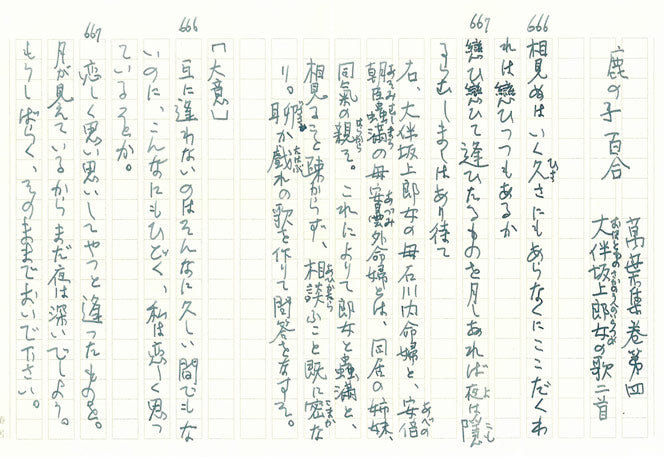 鹿の子百合
萬葉集巻第四
大伴坂上郎女の歌二首
666
相見ぬはいく久さにもあらなくにここだくわ
れは戀ひつつもあるか
667
戀ひ戀ひて逢ひたるものを月しあれば夜は隱
るらむしましはあり待て
右、大伴坂上郎女の母石川内命婦と、安倍
朝臣蟲滿の母安曇外命婦とは、同居の姉妹、
同氣の親そ。これによりて郎女と蟲滿と、
相見ること疎からず、相談ふこと既に密な
り。聊か戯れの歌を作りて問答をなすそ。
「大意」
666
互に逢わないのはそんなに久しい間でもな
いのに、こんなにもひどく、私は恋しく思っ
ていることか。
667
恋しく思い思いしてやっと逢ったものを。
月が見えているからまだ夜は深いでしょう。
もうしばらく、そのままでおいで下さい。